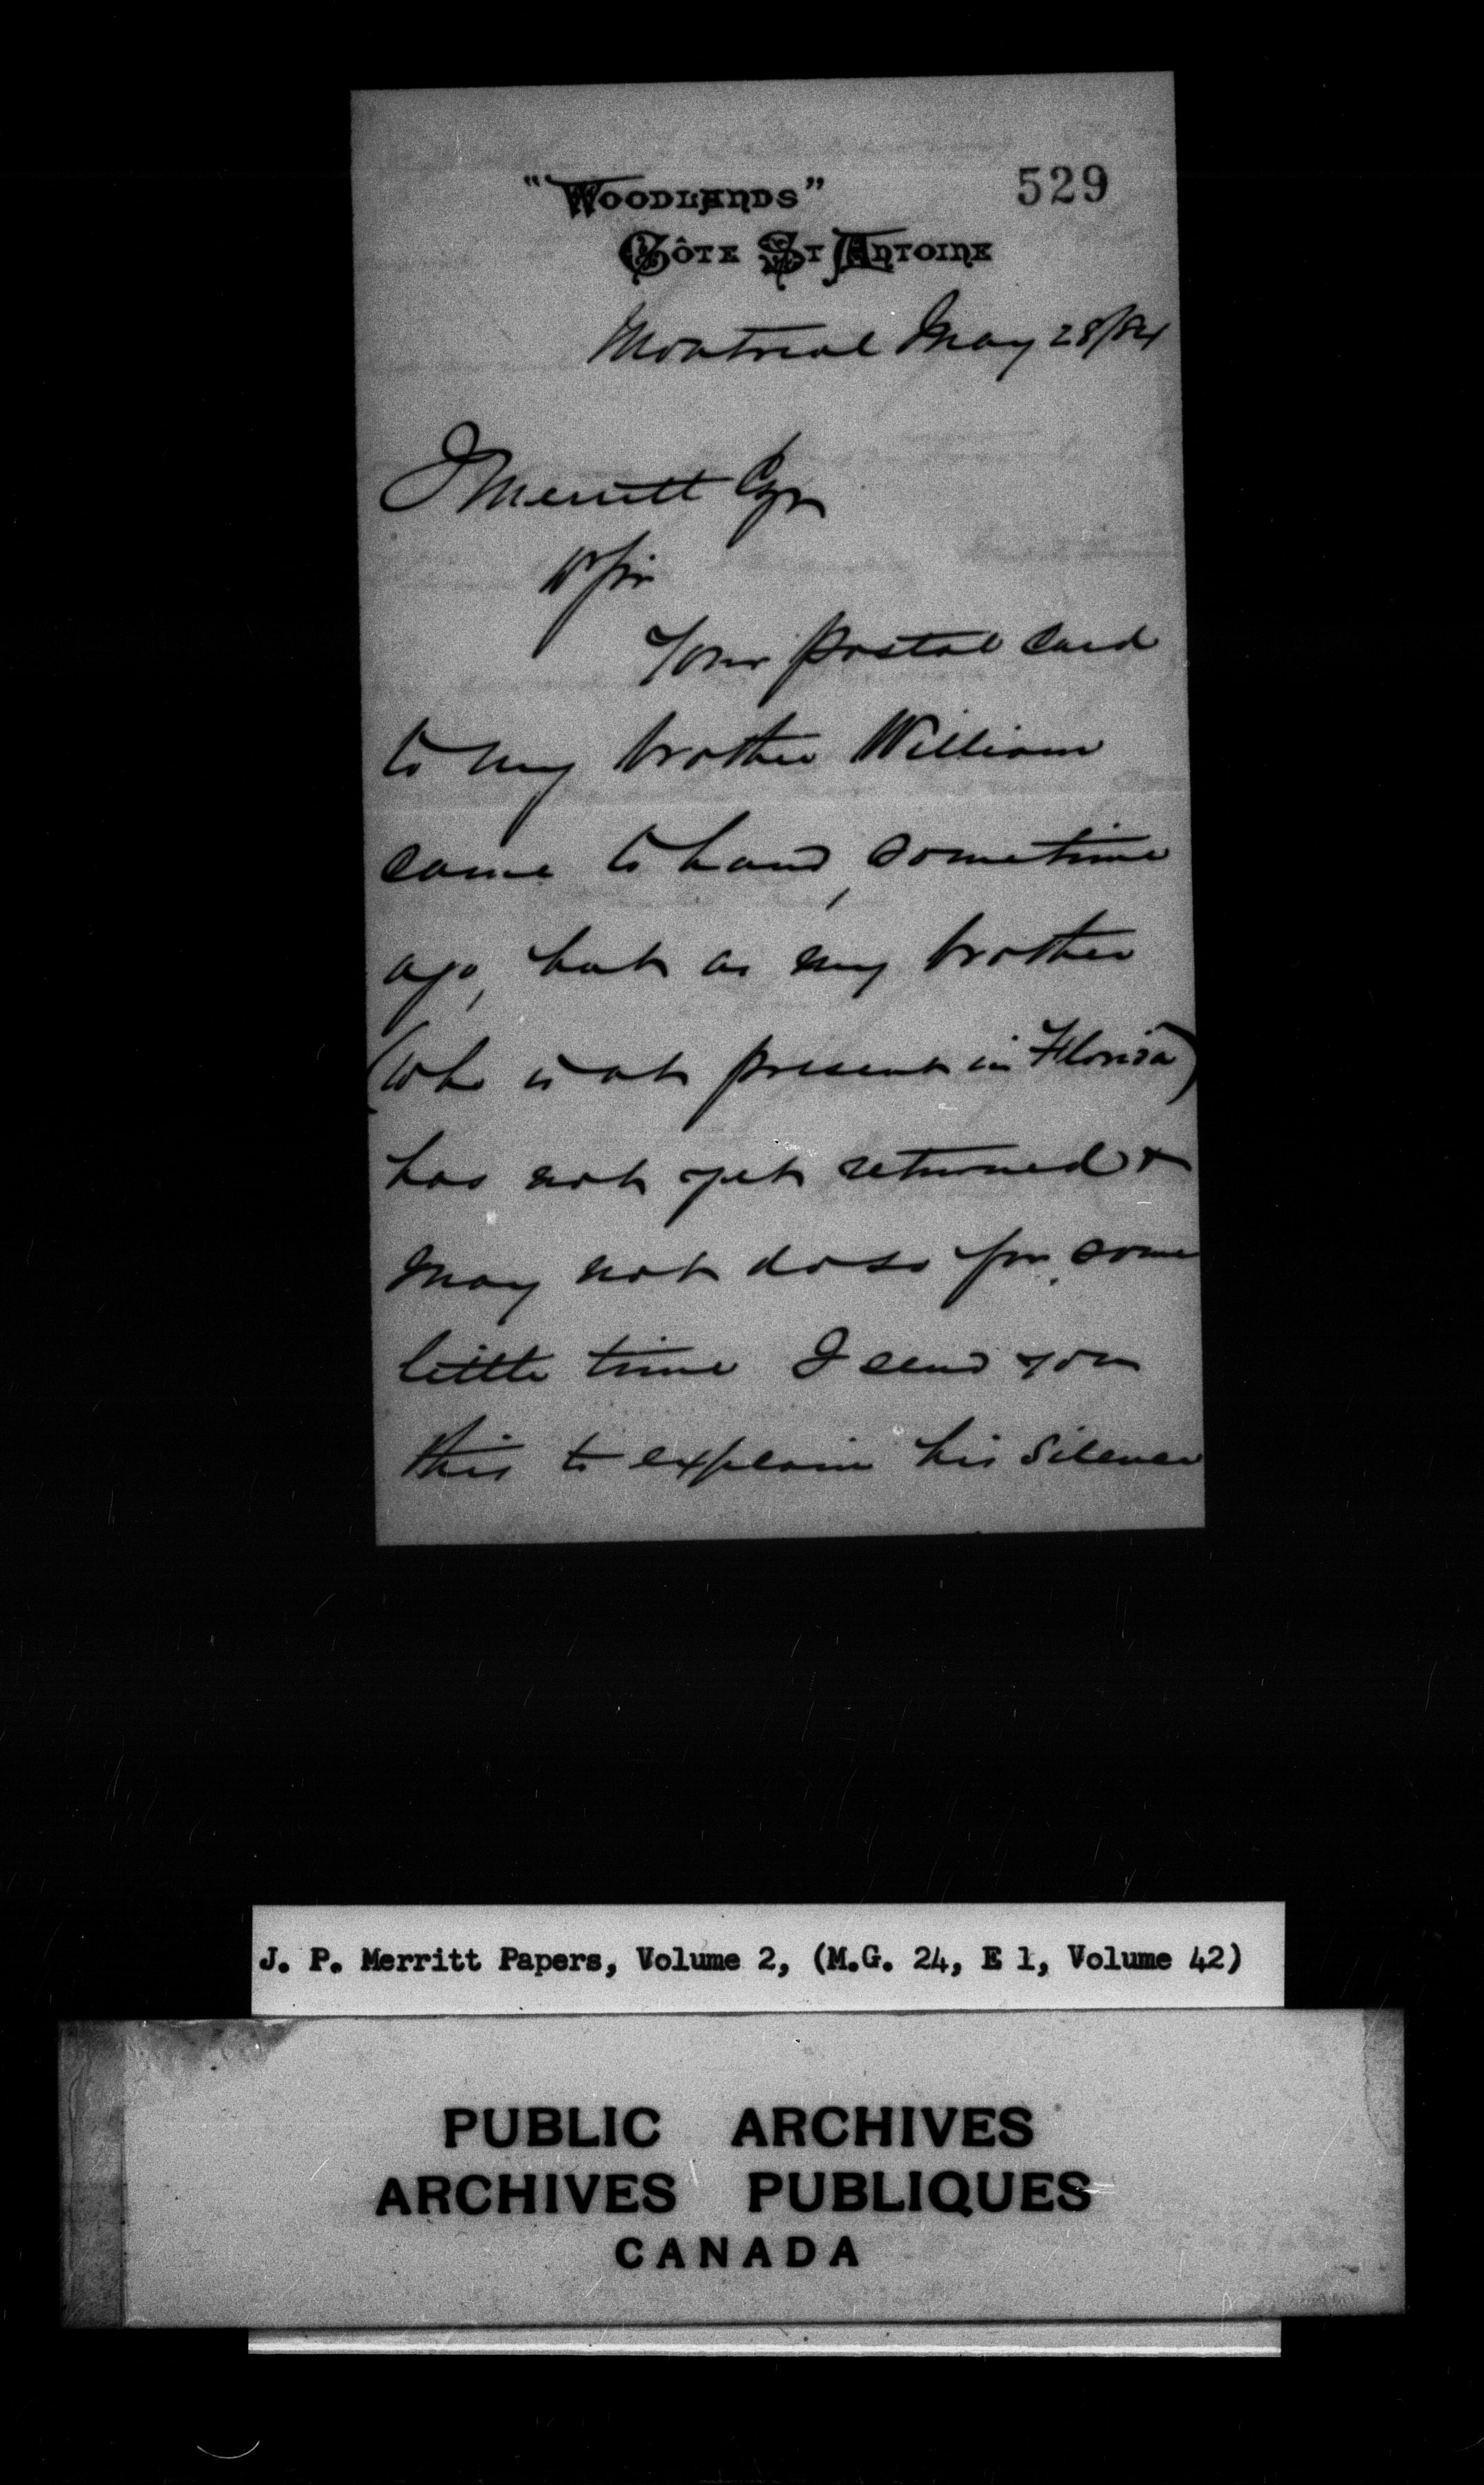 "Woodlands"
529
Côte St Antoine
Montreal May 28/84
J Merritt Esqr
D Sir
Your postal card
to my brother William
came to hand, sometime
ago, but as my brother
(who is at present in Florida)
has not yet returned &
may not do so for some
little time I send you
this to explain his silence
J. P. Merritt Papers, Volume 2, (M.G. 24, E 1, Volume 42)
PUBLIC ARCHIVES
ARCHIVES PUBLIQUES
CANADA